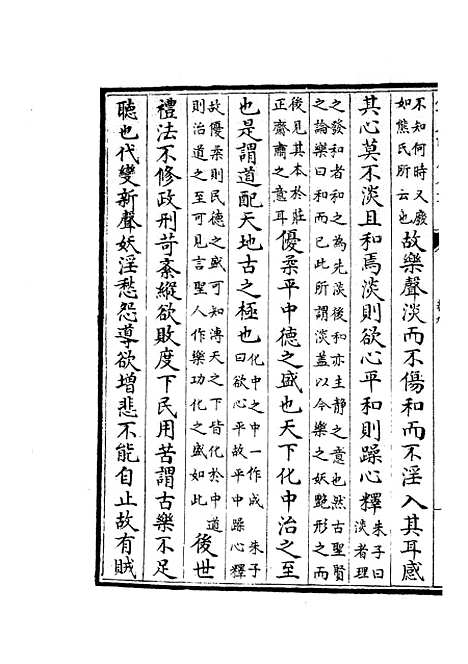 不知何時又廢
如熊氏所云也
故樂聲淡而不傷和而不淫入其耳感
其心莫不淡且和焉淡則欲心平和則躁心釋
朱子曰
淡者理
之發和者和之為先淡後和亦主靜之意也然古聖賢
之論樂曰和而已此所謂淡蓋以今樂之妖艷形之而
後見其本於莊
正齋肅之意耳
優柔平中德之盛也天下化中治之至
也是謂道配天地古之極也
化中之中一作成 朱子
曰欲心平故平中躁心釋
故優柔則民德之盛可知溥天之下皆化於中道
則治道之至可見言聖人作樂功化之盛如此
後世
禮法不修政刑苛紊縱欲敗度下民用苦謂古樂不足
聽也代變新聲妖淫愁怨導欲增悲不能自止故有賊